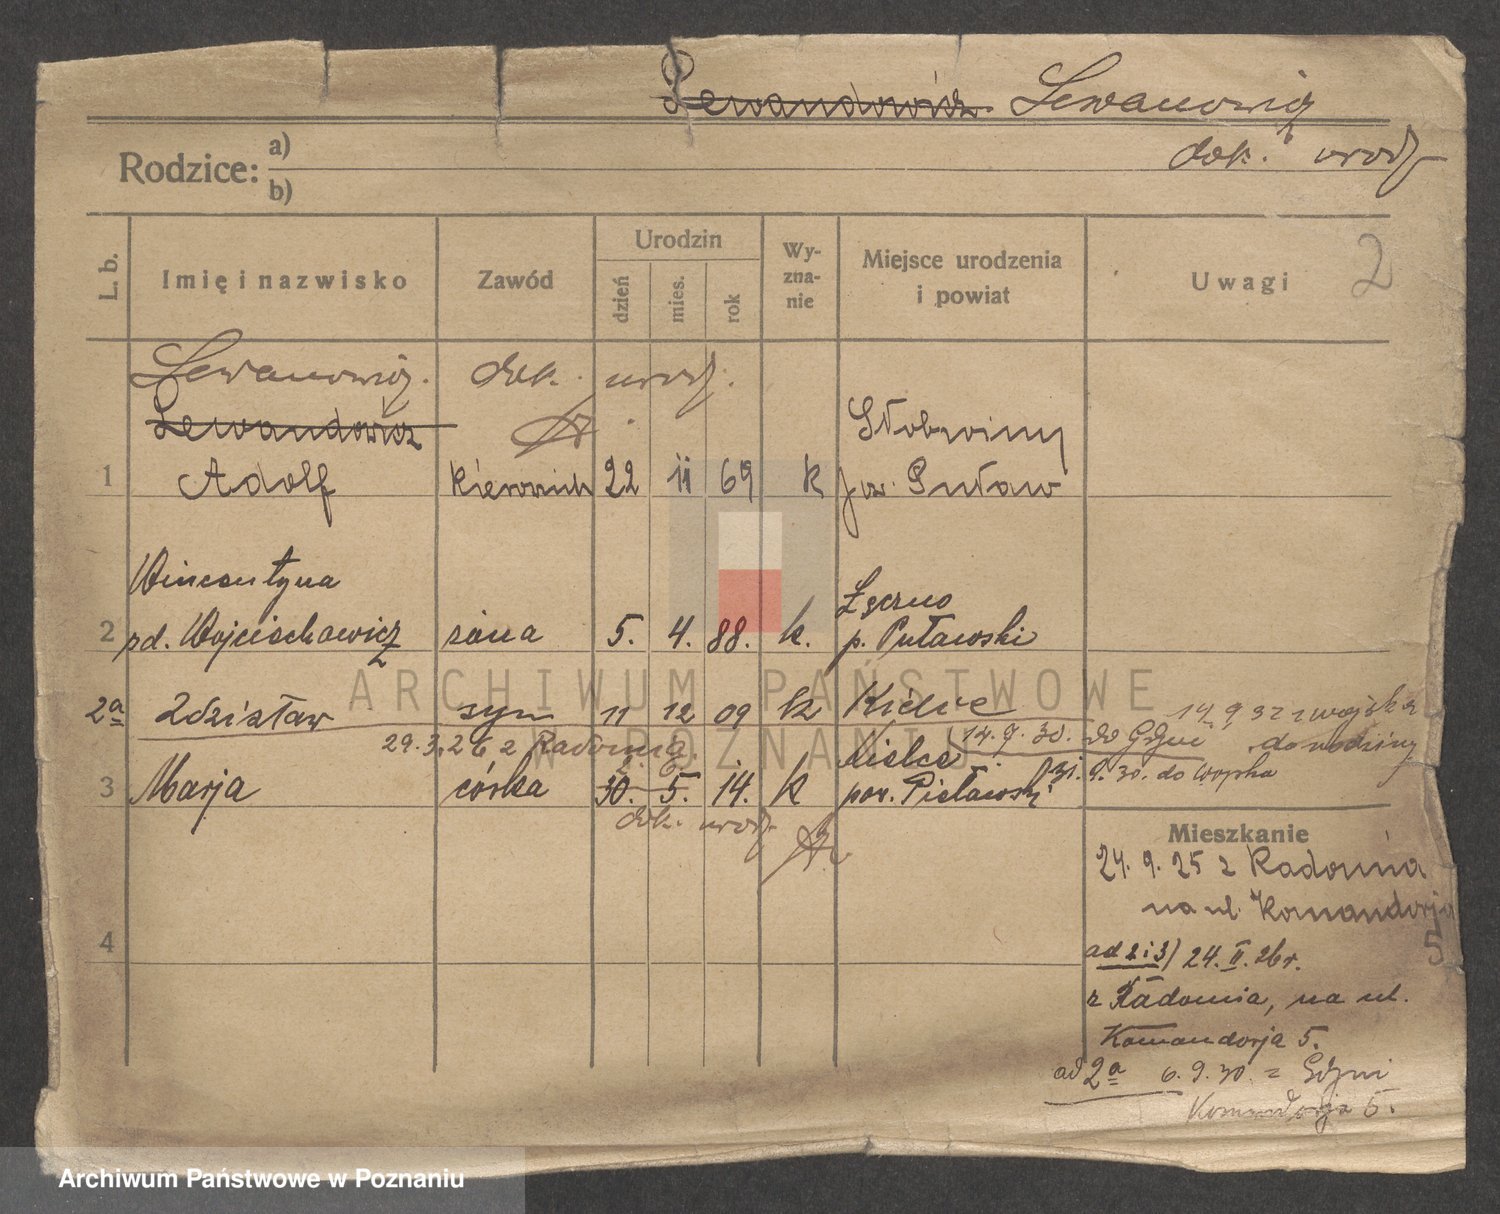 Lewandowicz Lewanowicz
dok. urodz
Rodzice: a)
b)
L. b.
Imię i nazwisko
Zawód
Urodzin
dzień
mies.
rok
Wy-
zna-
nie
Miejsce urodzenia
i powiat
Uwagi
2
Lewanowicz. dok. urodz.
Lewandowicz
1 Adolf kierownik 22 11 69 k
Słobwiny
pow. Puław
Wincentyna
2 zd. Wojciechowicz żona 5. 4. 88. k.
Łęczno
p. Puławski
2a Zdzisław syn 11 12 09 k Kielce
14 9 32 z wojska
do rodziny
29.3.26 z Radomia
14.9.30. do Gdyni
3 Marja córka 30. 5. 14. k
Kielce
pow.
31.9.30. do wojska
dok. urodz.
Mieszkanie
24. 9. 25 z Radomia
na ul. Komandorja
5
ad 2 i 3) 24. II. 26 r.
z Radomia, na ul.
Komandorja 5.
ad 2a 6.9.30. z Gdyni
Komandorja 5.
4
ARCHIWUM PAŃSTWOWE
W POZNANIU
Archiwum Państwowe w Poznaniu